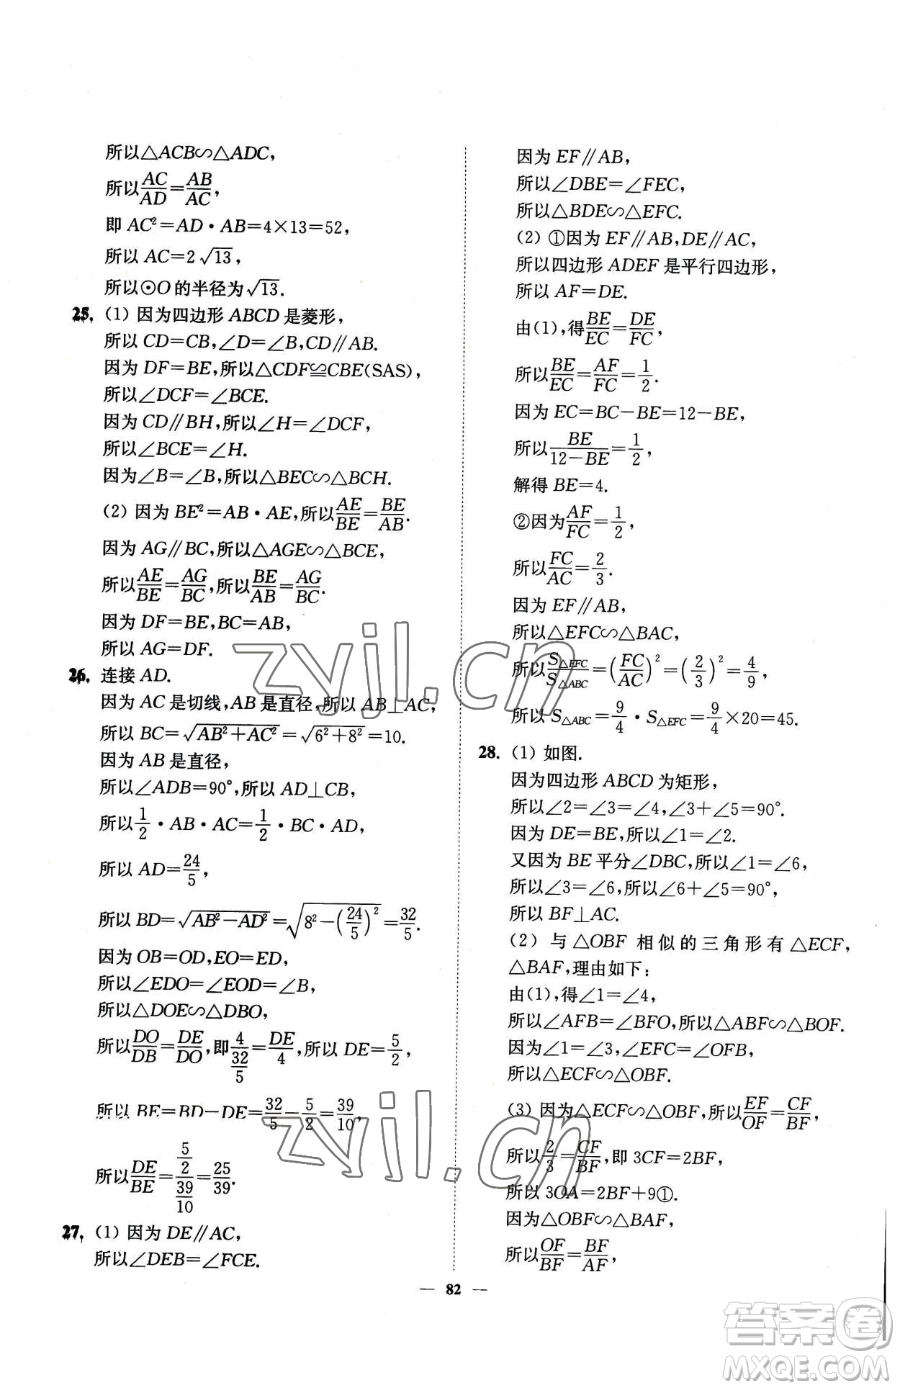 所以△ACB∽△ADC,
所以AC/AD=AB/AC,
即 AC²=AD・AB=4×13=52,
所以 AC=2√13,
所以⊙O 的半径为√13.
25. (1) 因为四边形 ABCD 是菱形,
所以 CD=CB,∠D=∠B,CD∥AB.
因为 DF=BE,所以△CDF≌CBE(SAS),
所以∠DCF=∠BCE.
因为 CD∥BH,所以∠H=∠DCF,
所以∠BCE=∠H.
因为∠B=∠B,所以△BEC∽△BCH.
(2) 因为 BE²=AB・AE,所以AE/BE=BE/AB.
因为 AG∥BC,所以△AGE∽△BCE,
所以AE/BE=AG/BC,所以BE/AB=AG/BC.
因为 DF=BE,BC=AB,
所以 AG=DF.
26. 连接 AD.
因为 AC 是切线,AB 是直径,所以 AB⊥AC,
所以 BC=√(AB²+AC²)=√(6²+8²)=10.
因为 AB 是直径,
所以∠ADB=90°,所以 AD⊥CB,
所以1/2・AB・AC=1/2・BC・AD,
所以 AD=24/5,
所以 BD=√(AB²-AD²)=√(8²-(24/5)²)=32/5.
因为 OB=OD,EO=ED,
所以∠EDO=∠EOD=∠B,
所以△DOE∽△DBO,
所以DO/DB=DE/DO,即4/(32/5)=DE/4,所以 DE=5/2,
所以 BE=BD-DE=32/5-5/2=39/10,
所以DE/BE=(5/2)/(39/10)=25/39.
27. (1) 因为 DE∥AC,
所以∠DEB=∠FCE.
因为 EF∥AB,
所以∠DBE=∠FEC,
所以△BDE∽△EFC.
(2) ①因为 EF∥AB,DE∥AC,
所以四边形 ADEF 是平行四边形,
所以 AF=DE.
由(1),得BE/EC=DE/FC,
所以BE/EC=AF/FC=1/2.
因为 EC=BC-BE=12-BE,
所以BE/(12-BE)=1/2,
解得 BE=4.
②因为AF/FC=1/2,
所以FC/AC=2/3.
因为 EF∥AB,
所以△EFC∽△BAC,
所以S△EFC/S△ABC=(FC/AC)²=(2/3)²=4/9,
所以 S△ABC=9/4・S△EFC=9/4×20=45.
28. (1) 如图.
因为四边形 ABCD 为矩形,
所以∠2=∠3=∠4,∠3+∠5=90°.
因为 DE=BE,所以∠1=∠2.
又因为 BE 平分∠DBC,所以∠1=∠6,
所以∠3=∠6,所以∠6+∠5=90°,
所以 BF⊥AC.
(2) 与△OBF 相似的三角形有△ECF,
△BAF,理由如下:
由(1),得∠1=∠4,
所以∠AFB=∠BFO,所以△ABF∽△BOF.
因为∠1=∠3,∠EFC=∠OFB,
所以△ECF∽△OBF.
(3) 因为△ECF∽△OBF,所以EF/OF=CF/BF,
所以2/3=CF/BF,即 3CF=2BF,
所以 3OA=2BF+9①.
因为△OBF∽△BAF,
所以OF/BF=BF/AF,
— 82 —
zyjl.cn
zyjl.cn
答案圈
MXQE.COM